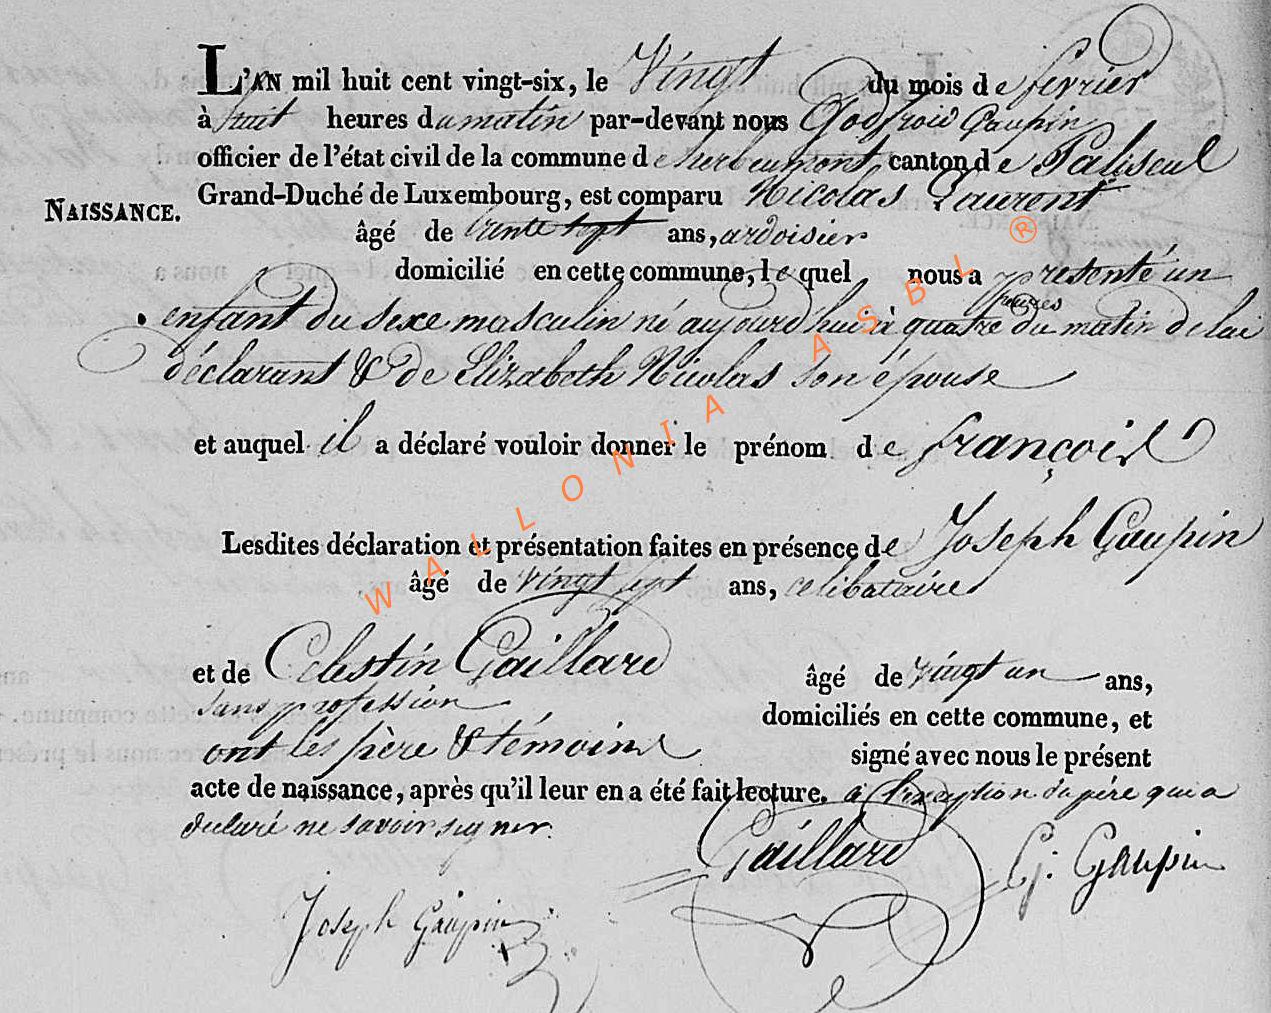 L'AN mil huit cent vingt-six, le Vingt du mois de février
à huit heures du matin par-devant nous Godfroid Gaupin
officier de l'état civil de la commune de herbeumont canton de Paliseul
Grand-Duché de Luxembourg, est comparu Nicolas Laurent
NAISSANCE.
âgé de trente sept ans, ardoisier
domicilié en cette commune, le quel nous a présenté un
enfant du sexe masculin né aujourd'hui à quatre heures du matin de lui
déclarant & de Elizabeth Nicolas son épouse
et auquel il a déclaré vouloir donner le prénom de françois
Lesdites déclaration et présentation faites en présence de Joseph Gaupin
âgé de vingt sept ans, celibataire
et de Celestin Gaillard âgé de vingt un ans,
sans profession domiciliés en cette commune, et
ont les père & témoins signé avec nous le présent
acte de naissance, après qu'il leur en a été fait lecture. à l'exception du père qui a
declaré ne savoir signer.
Gaillard G: Gaupin
Joseph Gaupin
WALLONIA ASBL ®